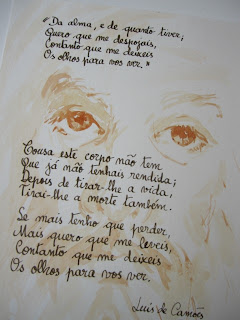 "Da alma, e de quanto tiver;
Quero que me despojais,
Contanto que me deixeis
Os olhos para vos ver."
Cousa este corpo não tem
Que já não tenhais rendida;
Depois de tirar-lhe a vida,
Tirai-lhe a morte também.
Se mais tenho que perder,
Mais quero que me leveis,
Contanto que me deixeis
Os olhos para vos ver.
Luís de Camões